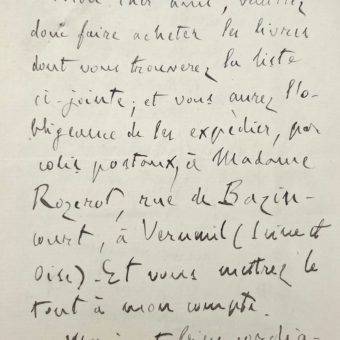 Mon cher ami, veuillez
donc faire acheter les livres
dont vous trouverez la liste
ci-jointe; et vous aurez l'o-
bligeance de les expédier, par
colis postaux, à Madame
Rozerot, rue de Bazin-
court, à Verneuil (Seine et
Oise). Et vous mettrez le
tout à mon compte.
bien cordia-